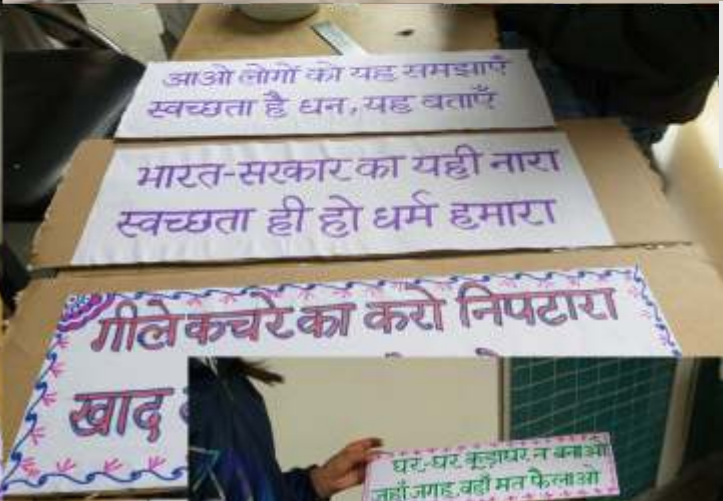 आओ लोगों को यह समझाएँ
स्वच्छता है धन, यह बताएँ
भारत-सरकार का यही नारा
स्वच्छता ही हो धर्म हमारा
गीले कचरे का करो निपटारा
खाद
घर-घर कूड़ाघर न बनाओ
जहाँ जगह, वहाँ मत फैलाओ